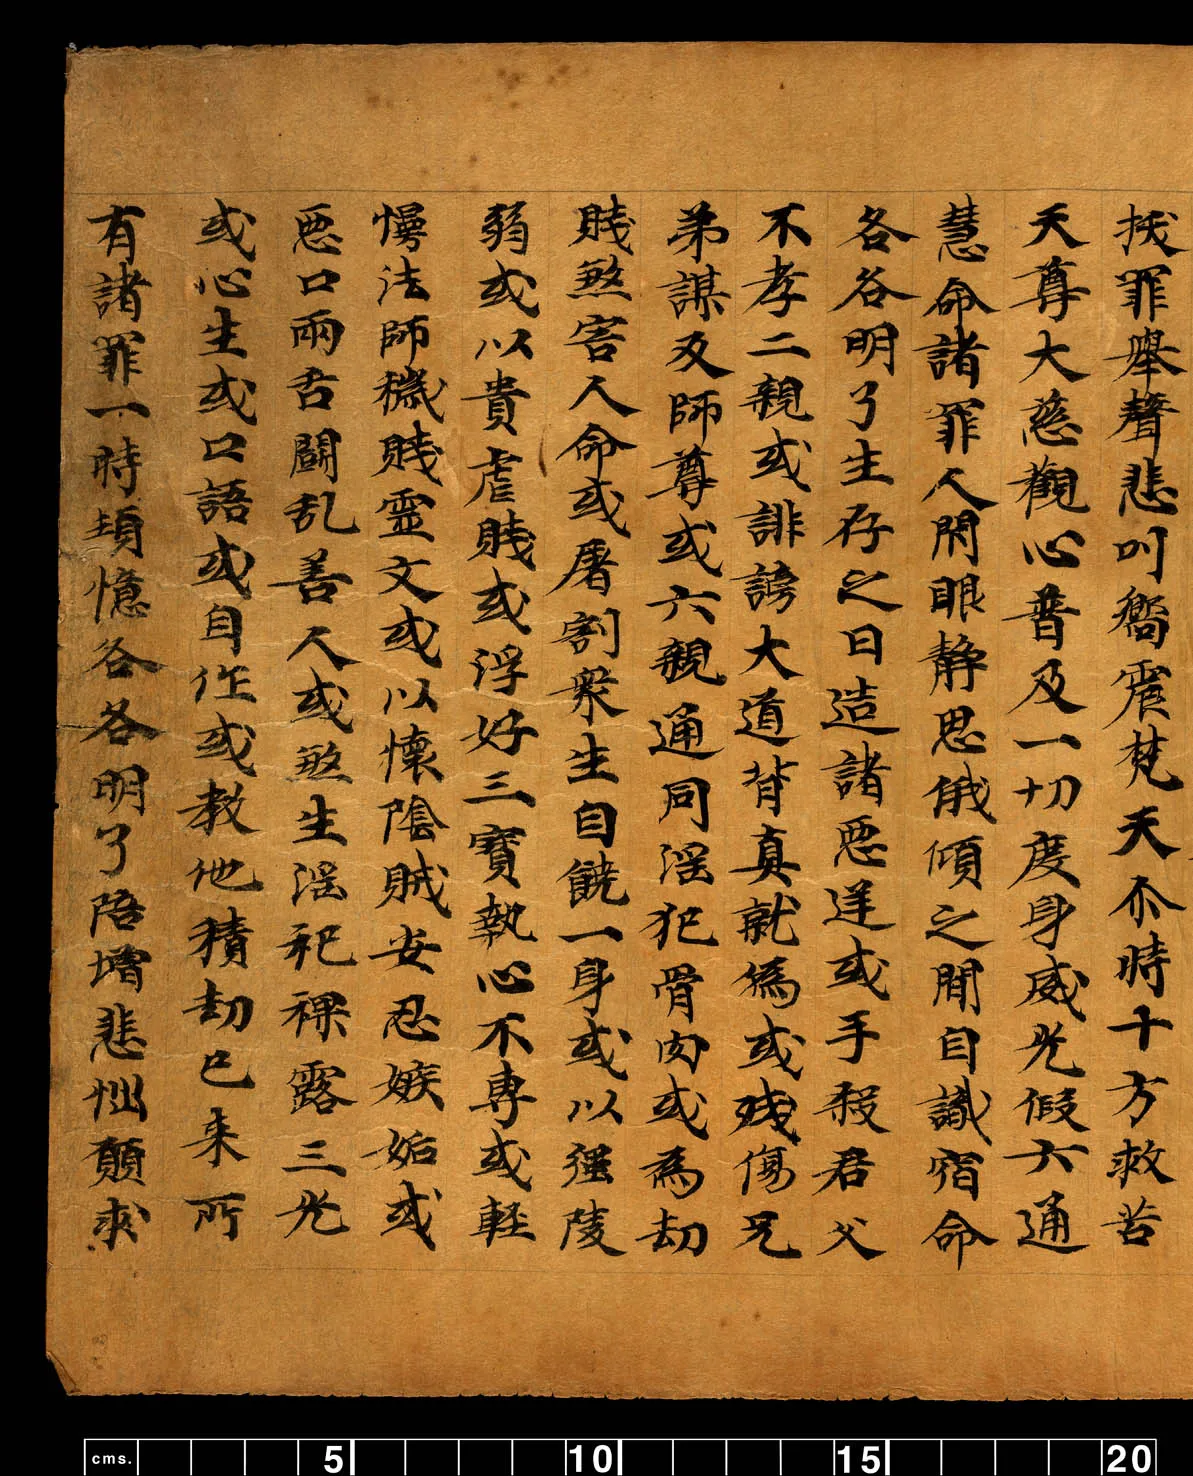 拔罪舉聲悲叫嚮震梵天尒時十方救苦
天尊大慈觀心普及一切度身威光假六通
慧命諸罪人閇眼靜思俄傾之間自識宿命
各各明了生存之日造諸惡逆或手殺君父
不孝二親或誹謗大道背真就偽或殘傷兄
弟謀及師尊或六親通同淫犯骨肉或為劫
賊煞害人命或屠割衆生自饒一身或以強陵
弱或以貴虐賤或浮好三寶執心不專或輕
慢法師穢賤靈文或以懷陰賊安忍嫉妬或
惡口兩舌鬪乱善人或煞生淫祀裸露三光
或心生或口語或自作或教他積劫已來所
有諸罪一時頓憶各各明了陪增悲惱願求